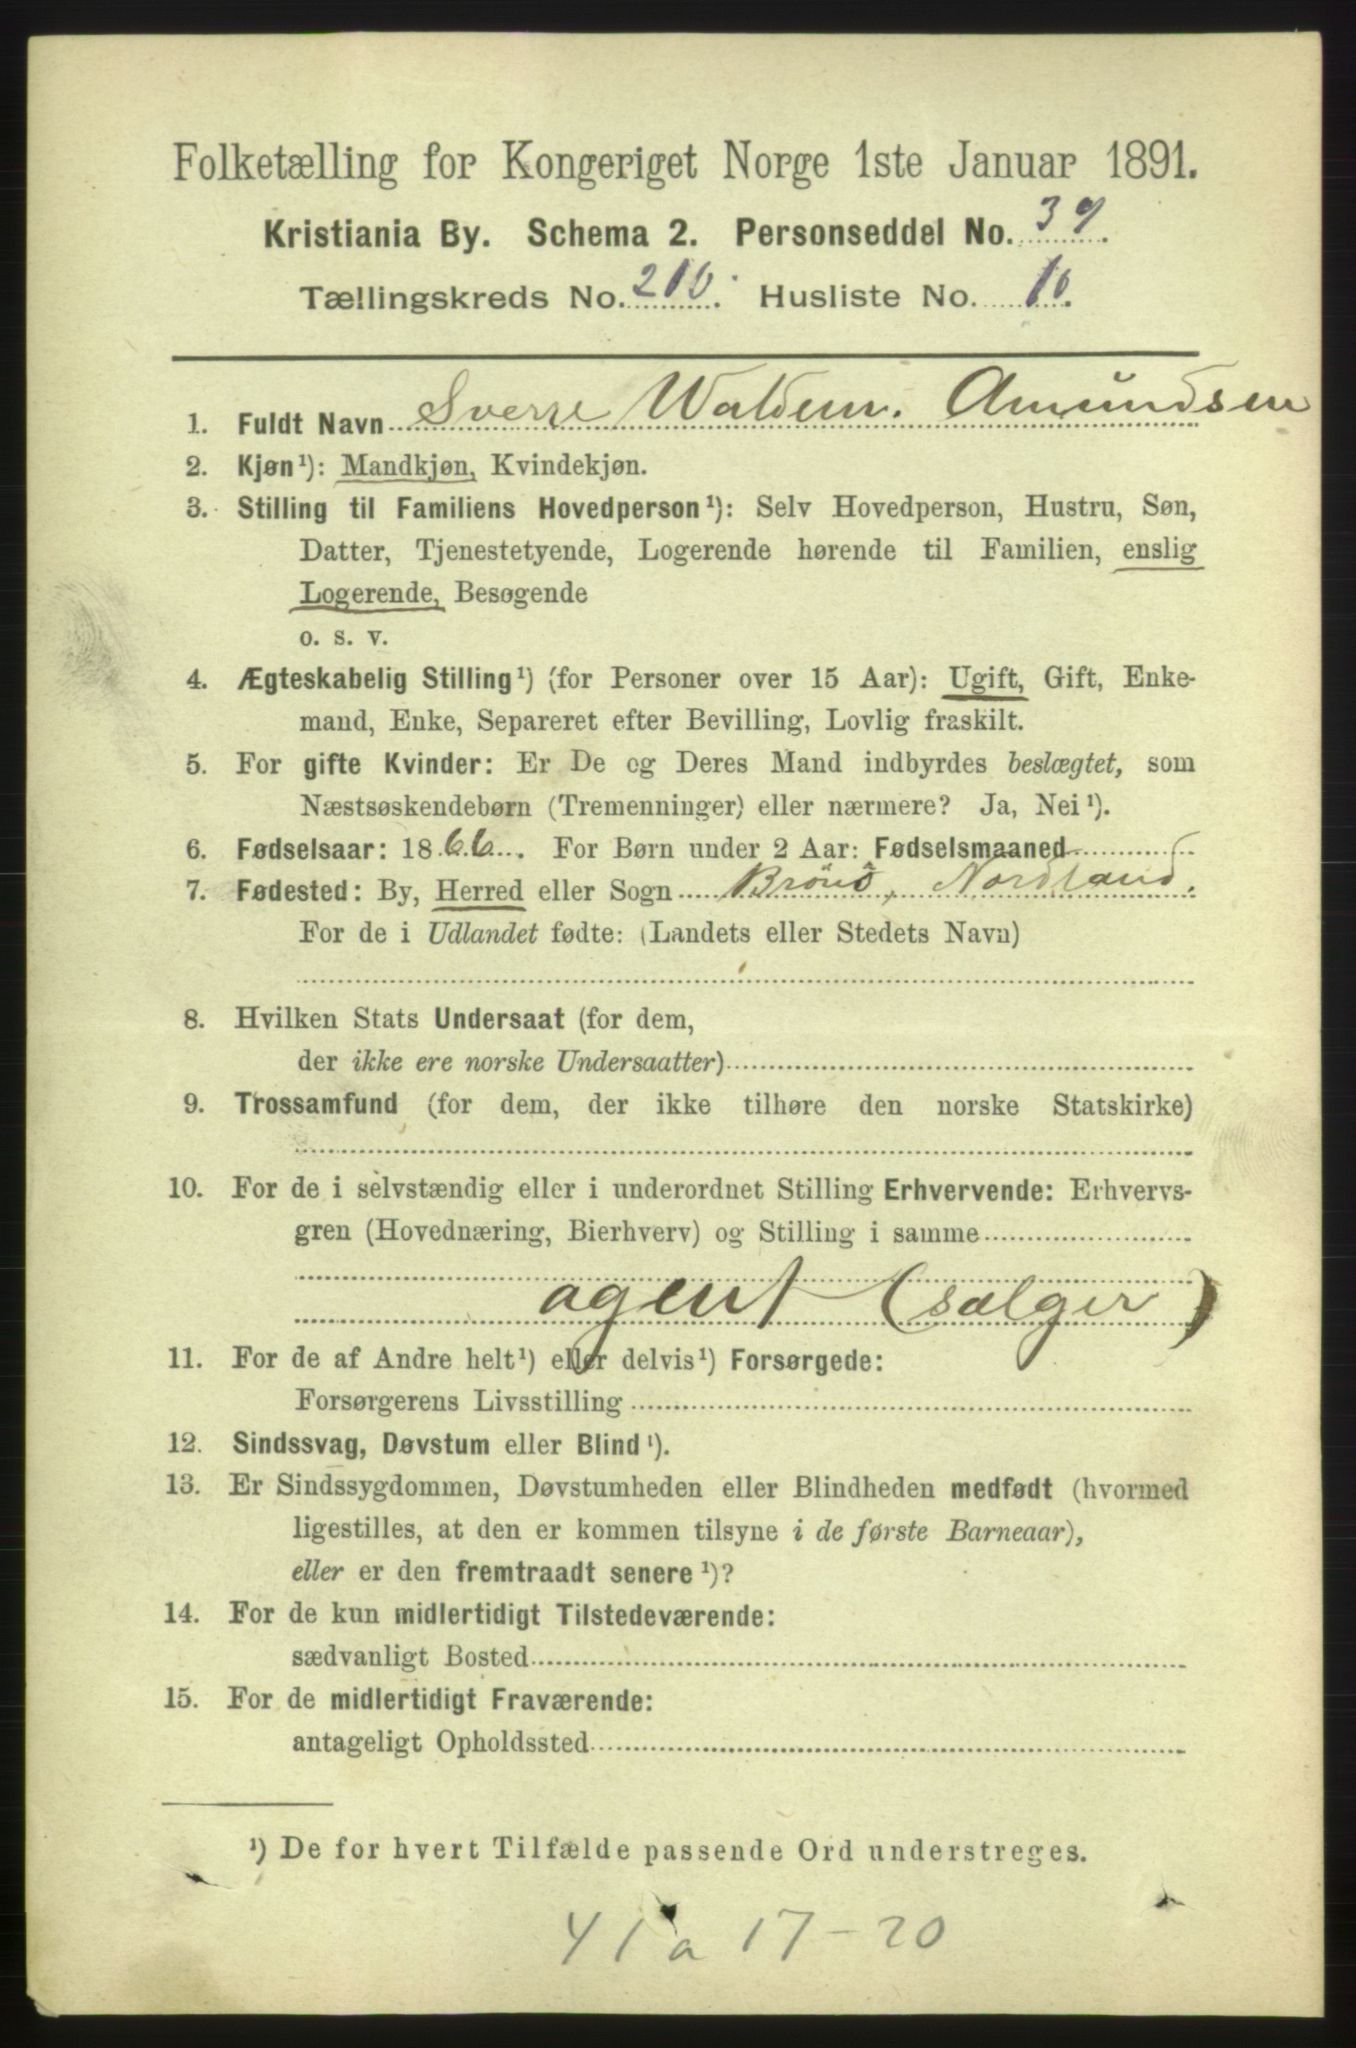 Folketælling for Kongeriget Norge 1ste Januar 1891.
Kristiania By. Schema 2. Personseddel No. 39.
Tællingskreds No. 210. Husliste No. 10.
1. Fuldt Navn Sverre Waldem. Amundsen
2. Kjøn¹): Mandkjøn, Kvindekjøn.
3. Stilling til Familiens Hovedperson¹): Selv Hovedperson, Hustru, Søn,
Datter, Tjenestetyende, Logerende hørende til Familien, enslig
Logerende, Besøgende
o. s. v.
4. Ægteskabelig Stilling¹) (for Personer over 15 Aar): Ugift, Gift, Enke-
mand, Enke, Separeret efter Bevilling, Lovlig fraskilt.
5. For gifte Kvinder: Er De og Deres Mand indbyrdes beslægtet, som
Næstsøskendebørn (Tremenninger) eller nærmere? Ja, Nei¹).
6. Fødselsaar: 1866. For Børn under 2 Aar: Fødselsmaaned
7. Fødested: By, Herred eller Sogn Brönö, Nordland.
For de i Udlandet fødte: (Landets eller Stedets Navn)
8. Hvilken Stats Undersaat (for dem,
der ikke ere norske Undersaatter)
9. Trossamfund (for dem, der ikke tilhøre den norske Statskirke)
10. For de i selvstændig eller i underordnet Stilling Erhvervende: Erhvervs-
gren (Hovednæring, Bierhverv) og Stilling i samme
agent (sælger)
11. For de af Andre helt¹) eller delvis¹) Forsørgede:
Forsørgerens Livsstilling
12. Sindssvag, Døvstum eller Blind¹).
13. Er Sindssygdommen, Døvstumheden eller Blindheden medfødt (hvormed
ligestilles, at den er kommen tilsyne i de første Barneaar),
eller er den fremtraadt senere¹)?
14. For de kun midlertidigt Tilstedeværende:
sædvanligt Bosted
15. For de midlertidigt Fraværende:
antageligt Opholdssted
¹) De for hvert Tilfælde passende Ord understreges.
41 a 17-20